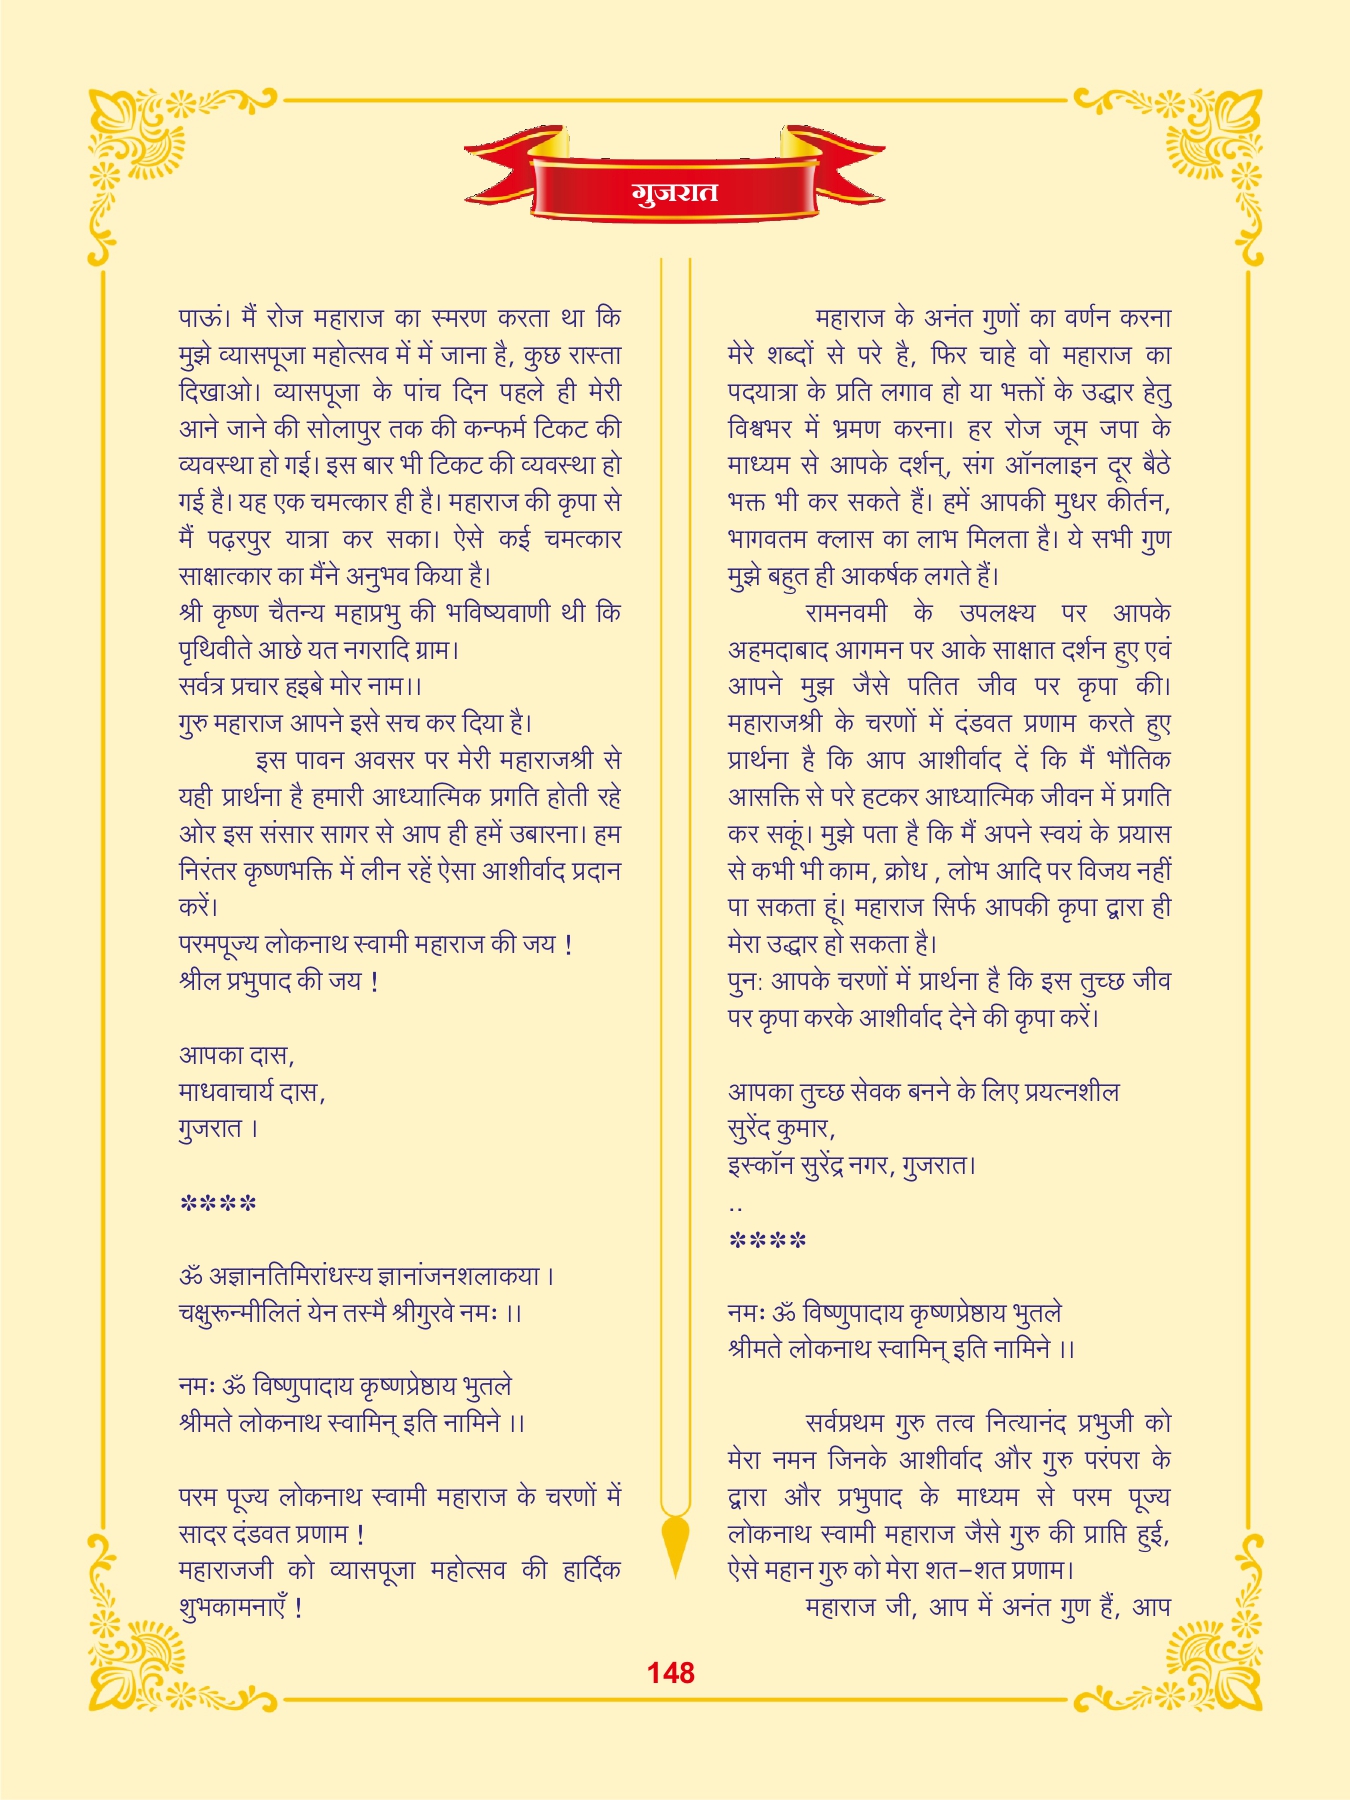 गुजरात
पाऊं। मैं रोज महाराज का स्मरण करता था कि
मुझे व्यासपूजा महोत्सव में में जाना है, कुछ रास्ता
दिखाओ। व्यासपूजा के पांच दिन पहले ही मेरी
आने जाने की सोलापुर तक की कन्फर्म टिकट की
व्यवस्था हो गई। इस बार भी टिकट की व्यवस्था हो
गई है। यह एक चमत्कार ही है। महाराज की कृपा से
मैं पढ़रपुर यात्रा कर सका। ऐसे कई चमत्कार
साक्षात्कार का मैंने अनुभव किया है।
श्री कृष्ण चैतन्य महाप्रभु की भविष्यवाणी थी कि
पृथिवीते आछे यत नगरादि ग्राम।
सर्वत्र प्रचार हइबे मोर नाम।।
गुरु महाराज आपने इसे सच कर दिया है।
इस पावन अवसर पर मेरी महाराजश्री से
यही प्रार्थना है हमारी आध्यात्मिक प्रगति होती रहे
ओर इस संसार सागर से आप ही हमें उबारना। हम
निरंतर कृष्णभक्ति में लीन रहें ऐसा आशीर्वाद प्रदान
करें।
परमपूज्य लोकनाथ स्वामी महाराज की जय !
श्रील प्रभुपाद की जय !
आपका दास,
माधवाचार्य दास,
गुजरात ।
****
ॐ अज्ञानतिमिरांधस्य ज्ञानांजनशलाकया ।
चक्षुरून्मीलितं येन तस्मै श्रीगुरवे नमः ।।
नमः ॐ विष्णुपादाय कृष्णप्रेष्ठाय भुतले
श्रीमते लोकनाथ स्वामिन् इति नामिने ।।
परम पूज्य लोकनाथ स्वामी महाराज के चरणों में
सादर दंडवत प्रणाम !
महाराजजी को व्यासपूजा महोत्सव की हार्दिक
शुभकामनाएँ !
महाराज के अनंत गुणों का वर्णन करना
मेरे शब्दों से परे है, फिर चाहे वो महाराज का
पदयात्रा के प्रति लगाव हो या भक्तों के उद्धार हेतु
विश्वभर में भ्रमण करना। हर रोज जूम जपा के
माध्यम से आपके दर्शन्, संग ऑनलाइन दूर बैठे
भक्त भी कर सकते हैं। हमें आपकी मुधर कीर्तन,
भागवतम क्लास का लाभ मिलता है। ये सभी गुण
मुझे बहुत ही आकर्षक लगते हैं।
रामनवमी के उपलक्ष्य पर आपके
अहमदाबाद आगमन पर आके साक्षात दर्शन हुए एवं
आपने मुझ जैसे पतित जीव पर कृपा की।
महाराजश्री के चरणों में दंडवत प्रणाम करते हुए
प्रार्थना है कि आप आशीर्वाद दें कि मैं भौतिक
आसक्ति से परे हटकर आध्यात्मिक जीवन में प्रगति
कर सकूं। मुझे पता है कि मैं अपने स्वयं के प्रयास
से कभी भी काम, क्रोध , लोभ आदि पर विजय नहीं
पा सकता हूं। महाराज सिर्फ आपकी कृपा द्वारा ही
मेरा उद्धार हो सकता है।
पुन: आपके चरणों में प्रार्थना है कि इस तुच्छ जीव
पर कृपा करके आशीर्वाद देने की कृपा करें।
आपका तुच्छ सेवक बनने के लिए प्रयत्नशील
सुरेंद कुमार,
इस्कॉन सुरेंद्र नगर, गुजरात।
..
****
नमः ॐ विष्णुपादाय कृष्णप्रेष्ठाय भुतले
श्रीमते लोकनाथ स्वामिन् इति नामिने ।।
सर्वप्रथम गुरु तत्व नित्यानंद प्रभुजी को
मेरा नमन जिनके आशीर्वाद और गुरु परंपरा के
द्वारा और प्रभुपाद के माध्यम से परम पूज्य
लोकनाथ स्वामी महाराज जैसे गुरु की प्राप्ति हुई,
ऐसे महान गुरु को मेरा शत-शत प्रणाम।
महाराज जी, आप में अनंत गुण हैं, आप
148